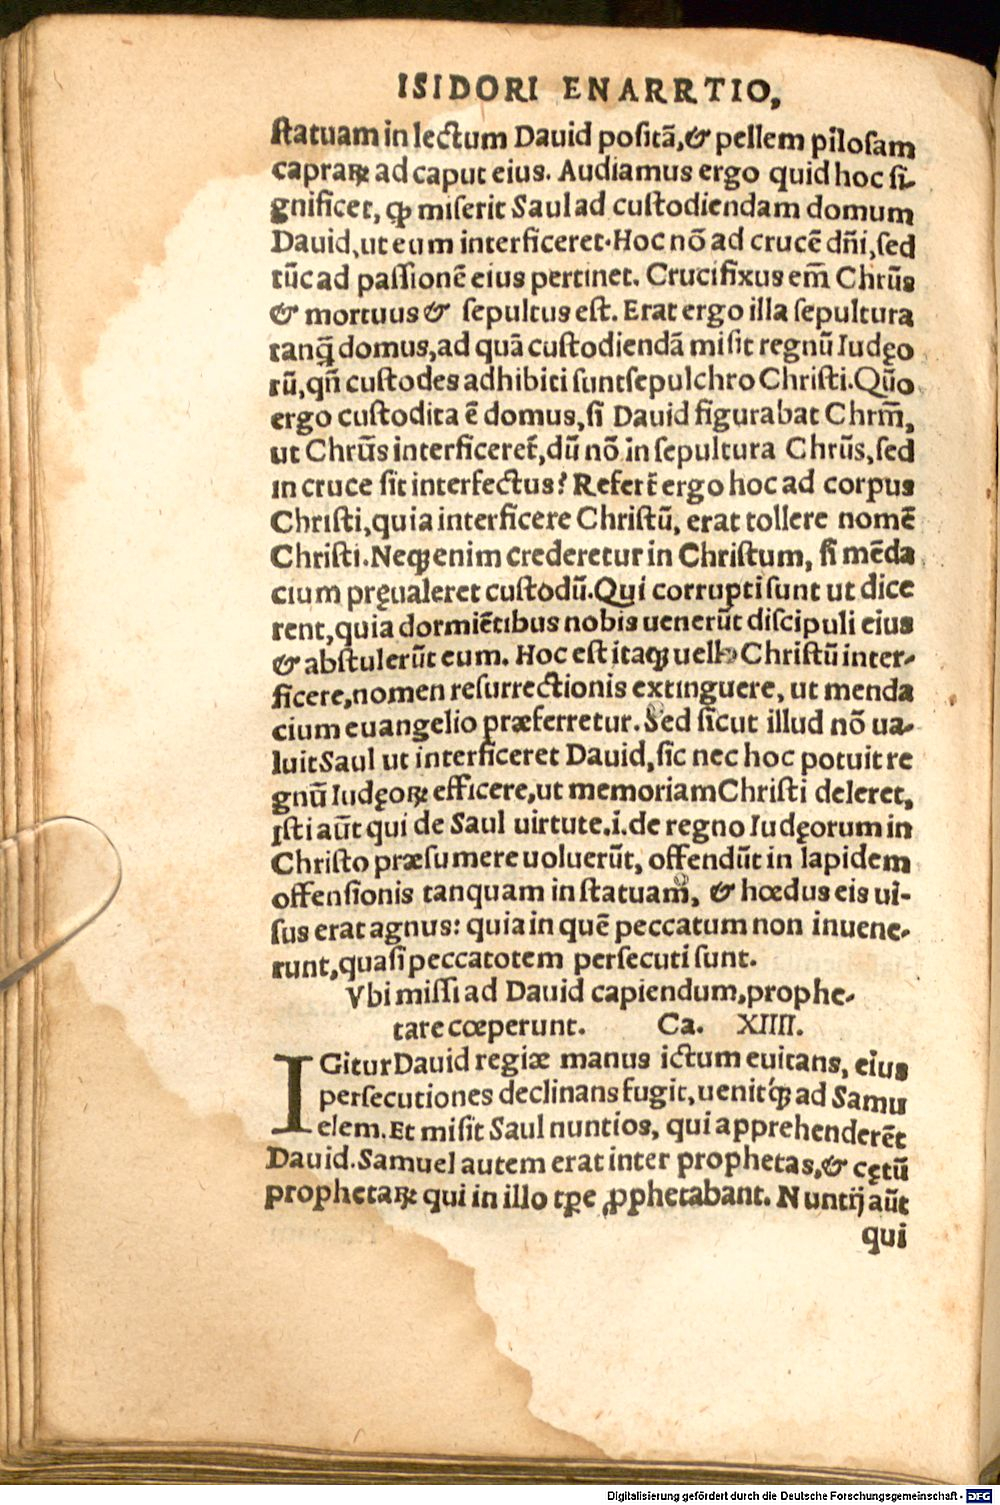 ISIDORI ENARRTIO,
ſtatuam in lectum Dauid poſitā, & pellem piloſam
caprarꝝ ad caput eius. Audiamus ergo quid hoc ſi-
gnificet, ꝙ miſerit Saul ad cuſtodiendam domum
Dauid, ut eum interficeret. Hoc nō ad crucē dñi, ſed
tūc ad paſſionē eius pertinet. Crucifixus em̄ Chrūs
& mortuus & ſepultus eſt. Erat ergo illa ſepultura
tanꝗ̄ domus, ad quā cuſtodiendā miſit regnū Iudęo
rū, qñ cuſtodes adhibiti ſunt ſepulchro Chriſti. Qūo
ergo cuſtodita ē domus, ſi Dauid figurabat Chrm̄,
ut Chrūs interficeret̄, dū nō in ſepultura Chrūs, ſed
in cruce ſit interfectus? Refert̄ ergo hoc ad corpus
Chriſti, quia interficere Chriſtū, erat tollere nomē
Chriſti. Neqꝫ enim crederetur in Chriſtum, ſi mēda
cium pręualeret cuſtodū. Qui corrupti ſunt ut dice
rent, quia dormiētibus nobis uenerūt diſcipuli eius
& abſtulerūt eum. Hoc eſt itaqꝫ uelle Chriſtū inter-
ficere, nomen reſurrectionis extinguere, ut menda
cium euangelio præferretur. Sed ſicut illud nō ua-
luit Saul ut interficeret Dauid, ſic nec hoc potuit re
gnū Iudęorꝝ efficere, ut memoriam Chriſti deleret,
iſti aūt qui de Saul uirtute .i. de regno Iudęorum in
Chriſto præſumere uoluerūt, offendūt in lapidem
offenſionis tanquam in ſtatuam, & hœdus eis ui-
ſus erat agnus: quia in quē peccatum non inuene-
runt, quaſi peccatotem perſecuti ſunt.
Vbi miſſi ad Dauid capiendum, prophe-
tare cœperunt. Ca. XIIII.
IGitur Dauid regiæ manus ictum euitans, eius
perſecutiones declinans fugit, uenitqꝫ ad Samu
elem. Et miſit Saul nuntios, qui apprehenderēt
Dauid. Samuel autem erat inter prophetas, & cętū
prophetarꝝ qui in illo tꝑe ꝓphetabant. Nuntij aūt
qui
Digitalisierung gefördert durch die Deutsche Forschungsgemeinschaft - DFG